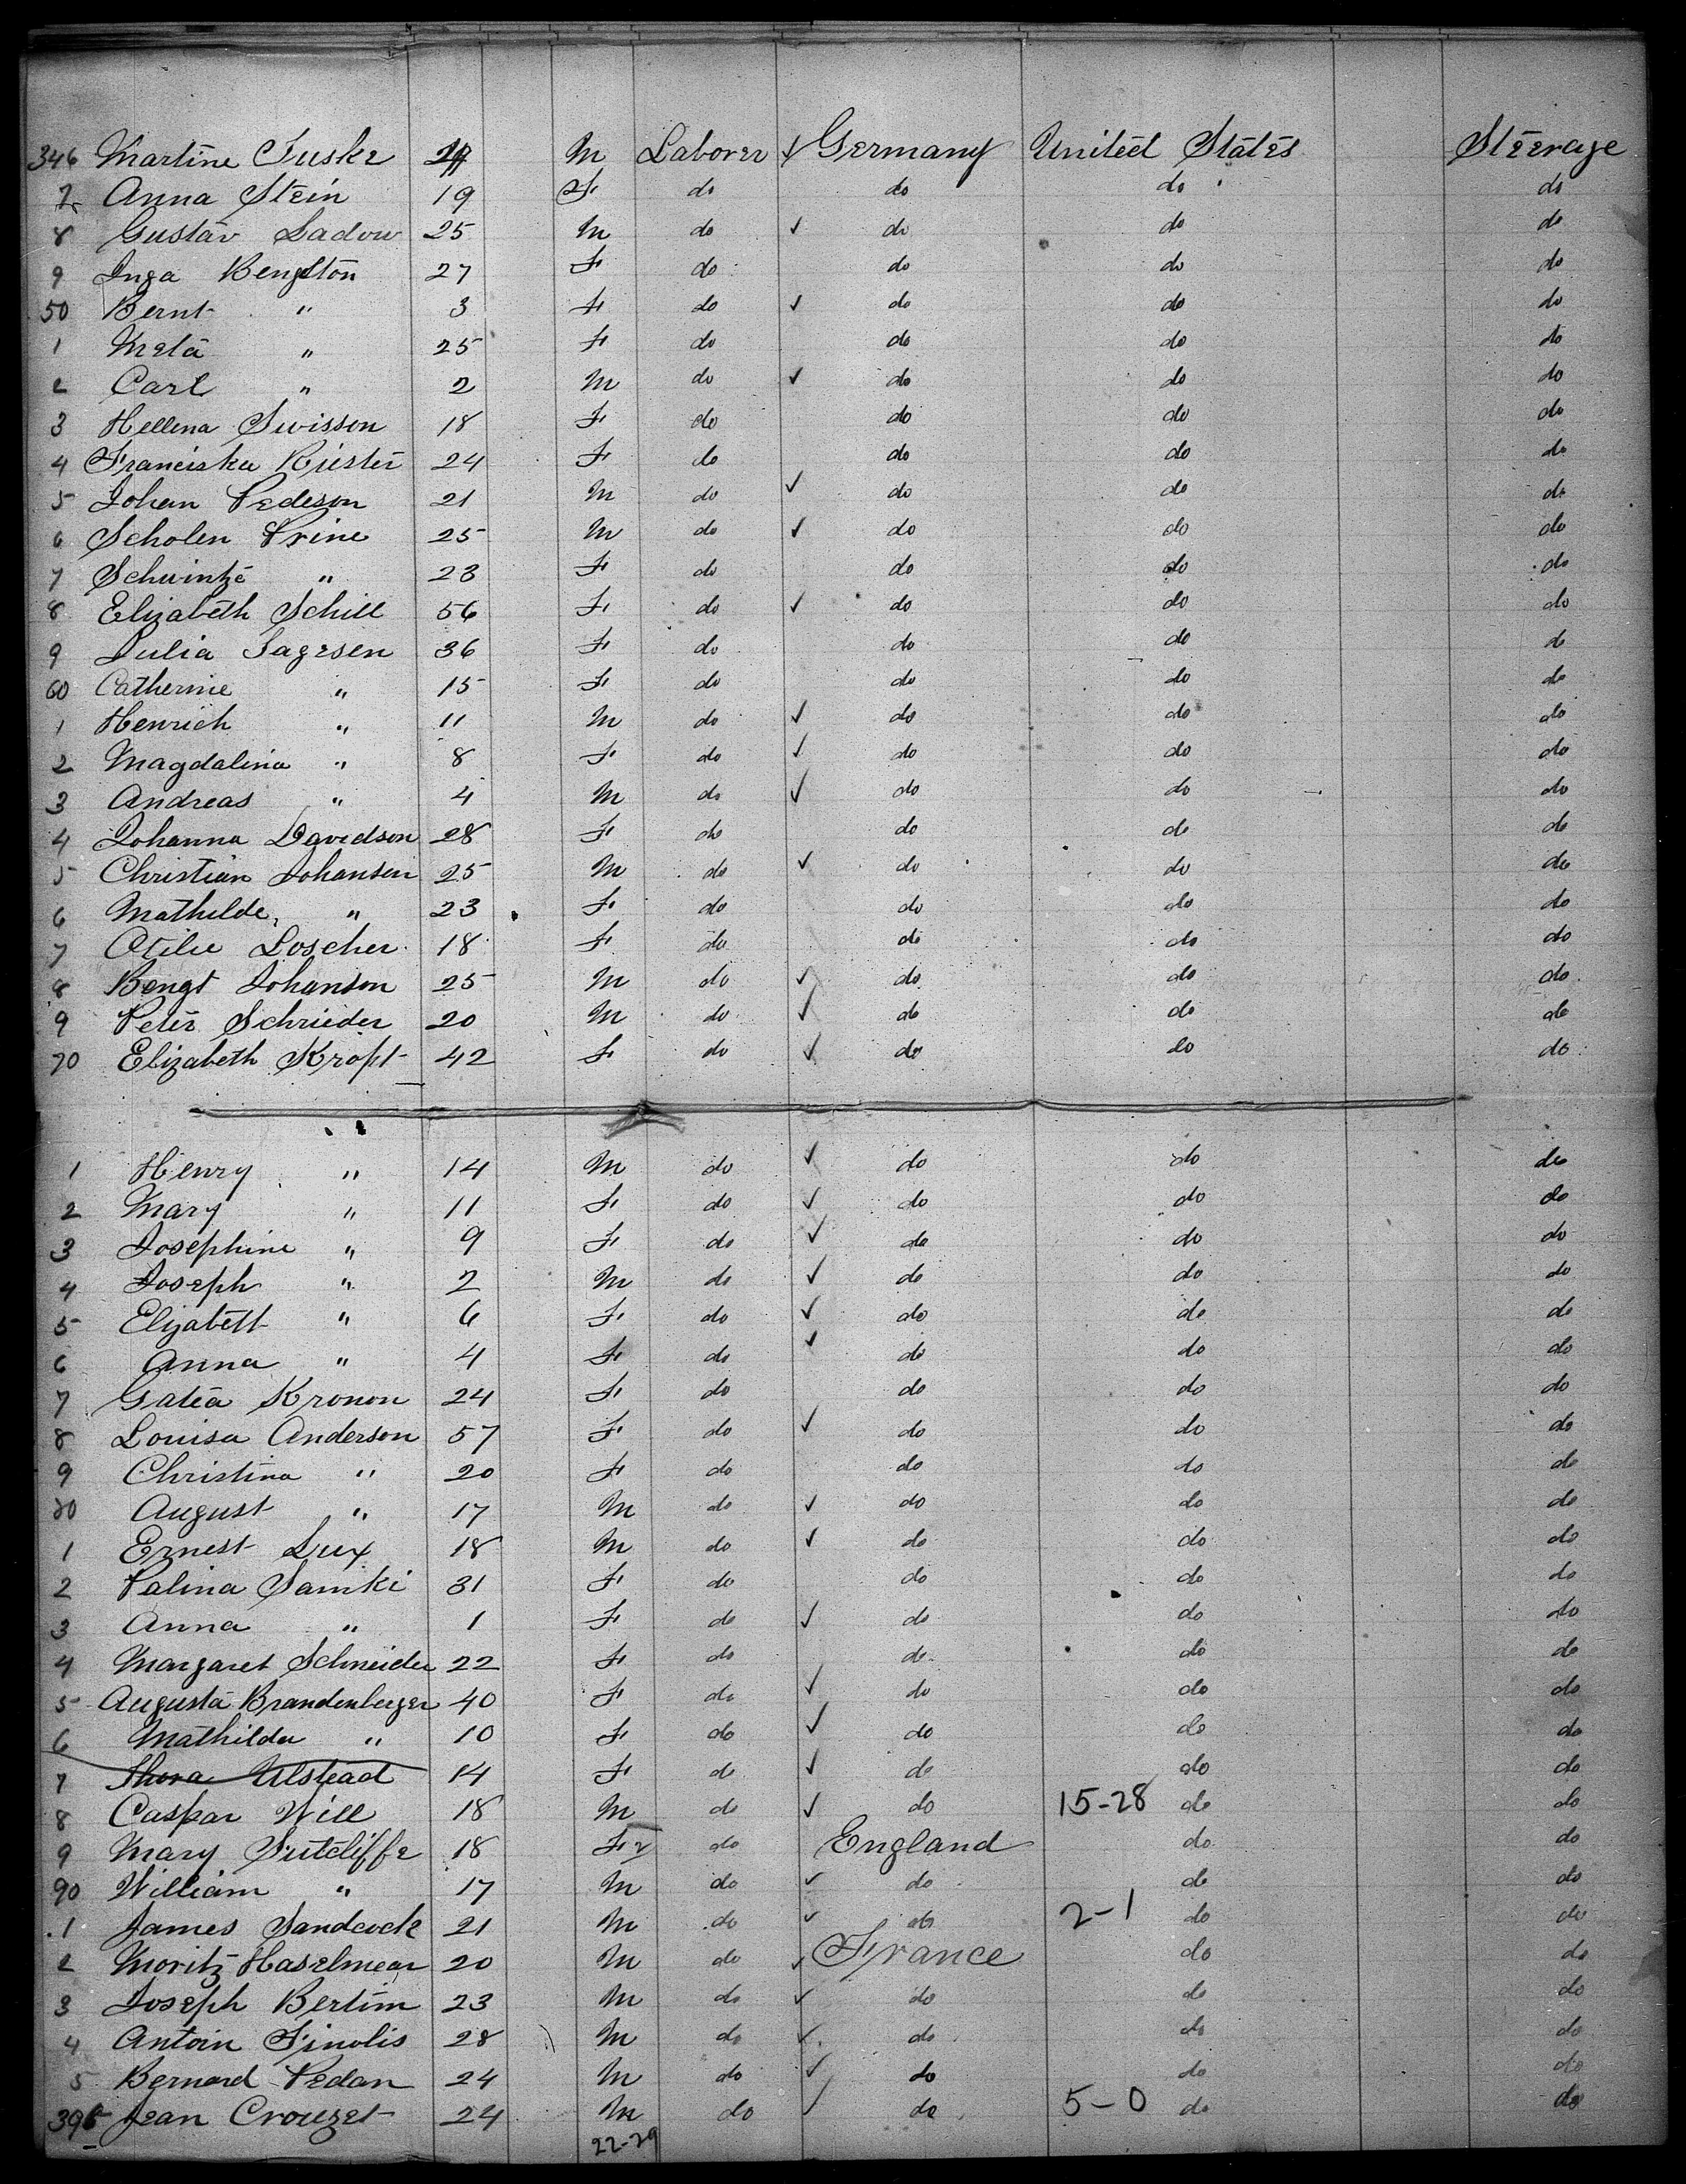 346 Martine Tuske M Laborer ✓ Germany United States Steerage
7 Anna Stein 19 F do do do do
8 Gustav Sadow 25 M do ✓ do do do
9 Inga Bengston 27 F do do do do
50 Bernt " 3 F do ✓ do do do
1 Meta " 25 F do do do do
2 Carl " 2 M do ✓ do do do
3 Hellena Swisson 18 F do do do do
4 Franciska Riester 24 F do do do do
5 Johan Pedeson 21 M do ✓ do do do
6 Scholen Prine 25 M do ✓ do do do
7 Schwintze " 23 F do do do do
8 Elizabeth Schill 56 F do ✓ do do do
9 Julia Sagesen 36 F do do do do
60 Catherine " 15 F do do do do
1 Henrich " 11 M do ✓ do do do
2 Magdalina " 8 F do ✓ do do do
3 Andreas " 4 M do ✓ do do do
4 Johanna Davidson 28 F do do do do
5 Christian Johansen 25 M do ✓ do do do
6 Mathilde " 23 F do do do do
7 Otilie Loscher 18 F do do do do
8 Bengt Johanson 25 M do ✓ do do do
9 Peter Schrieder 20 M do ✓ do do do
70 Elizabeth Kroft 42 F do ✓ do do do
1 Henry " 14 M do ✓ do do do
2 Mary " 11 F do ✓ do do do
3 Josephine " 9 F do ✓ do do do
4 Joseph " 2 M do ✓ do do do
5 Elizabett " 6 F do ✓ do do do
6 Anna " 4 F do ✓ do do do
7 Gatea Kronon 24 F do do do do
8 Louisa Anderson 57 F do ✓ do do do
9 Christina " 20 F do do do do
80 August " 17 M do ✓ do do do
1 Ernest Lux 18 M do ✓ do do do
2 Palina Samki 31 F do do do do
3 Anna " 1 F do ✓ do do do
4 Margaret Schneider 22 F do do do do
5 Augusta Brandenberger 40 F do ✓ do do do
6 Mathilda " 10 F do ✓ do do do
7 Thora Ulstead 14 F do ✓ do do do
8 Caspar Will 18 M do ✓ do 15-28 do do
9 Mary Sutcliffe 18 F do England do do
90 William " 17 M do ✓ do do do
1 James Sandcock 21 M do ✓ do 2-1 do do
2 Moritz Haselmear 20 M do ✓ France do do
3 Joseph Bertim 23 M do ✓ do do do
4 Antoin Finolis 28 M do ✓ do do do
5 Bernard Pedan 24 M do ✓ do do do
396 Jean Crouzet 24 M do ✓ do 5-0 do do
22-29